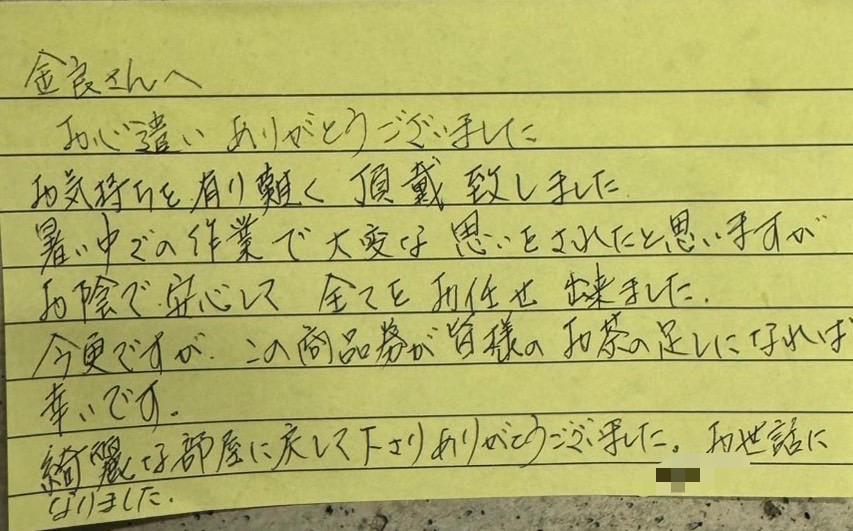 金良さんへ
お心遣い ありがとうございました
お気持ちを有り難く 頂戴致しました
暑い中での作業で大変な思いをされたと思いますが
お陰で安心して 全てをお任せ出来ました.
今更ですが、この商品券が皆様のお茶の足しになれば
幸いです。
綺麗な部屋に戻して下さりありがとうございました。お世話に
なりました.